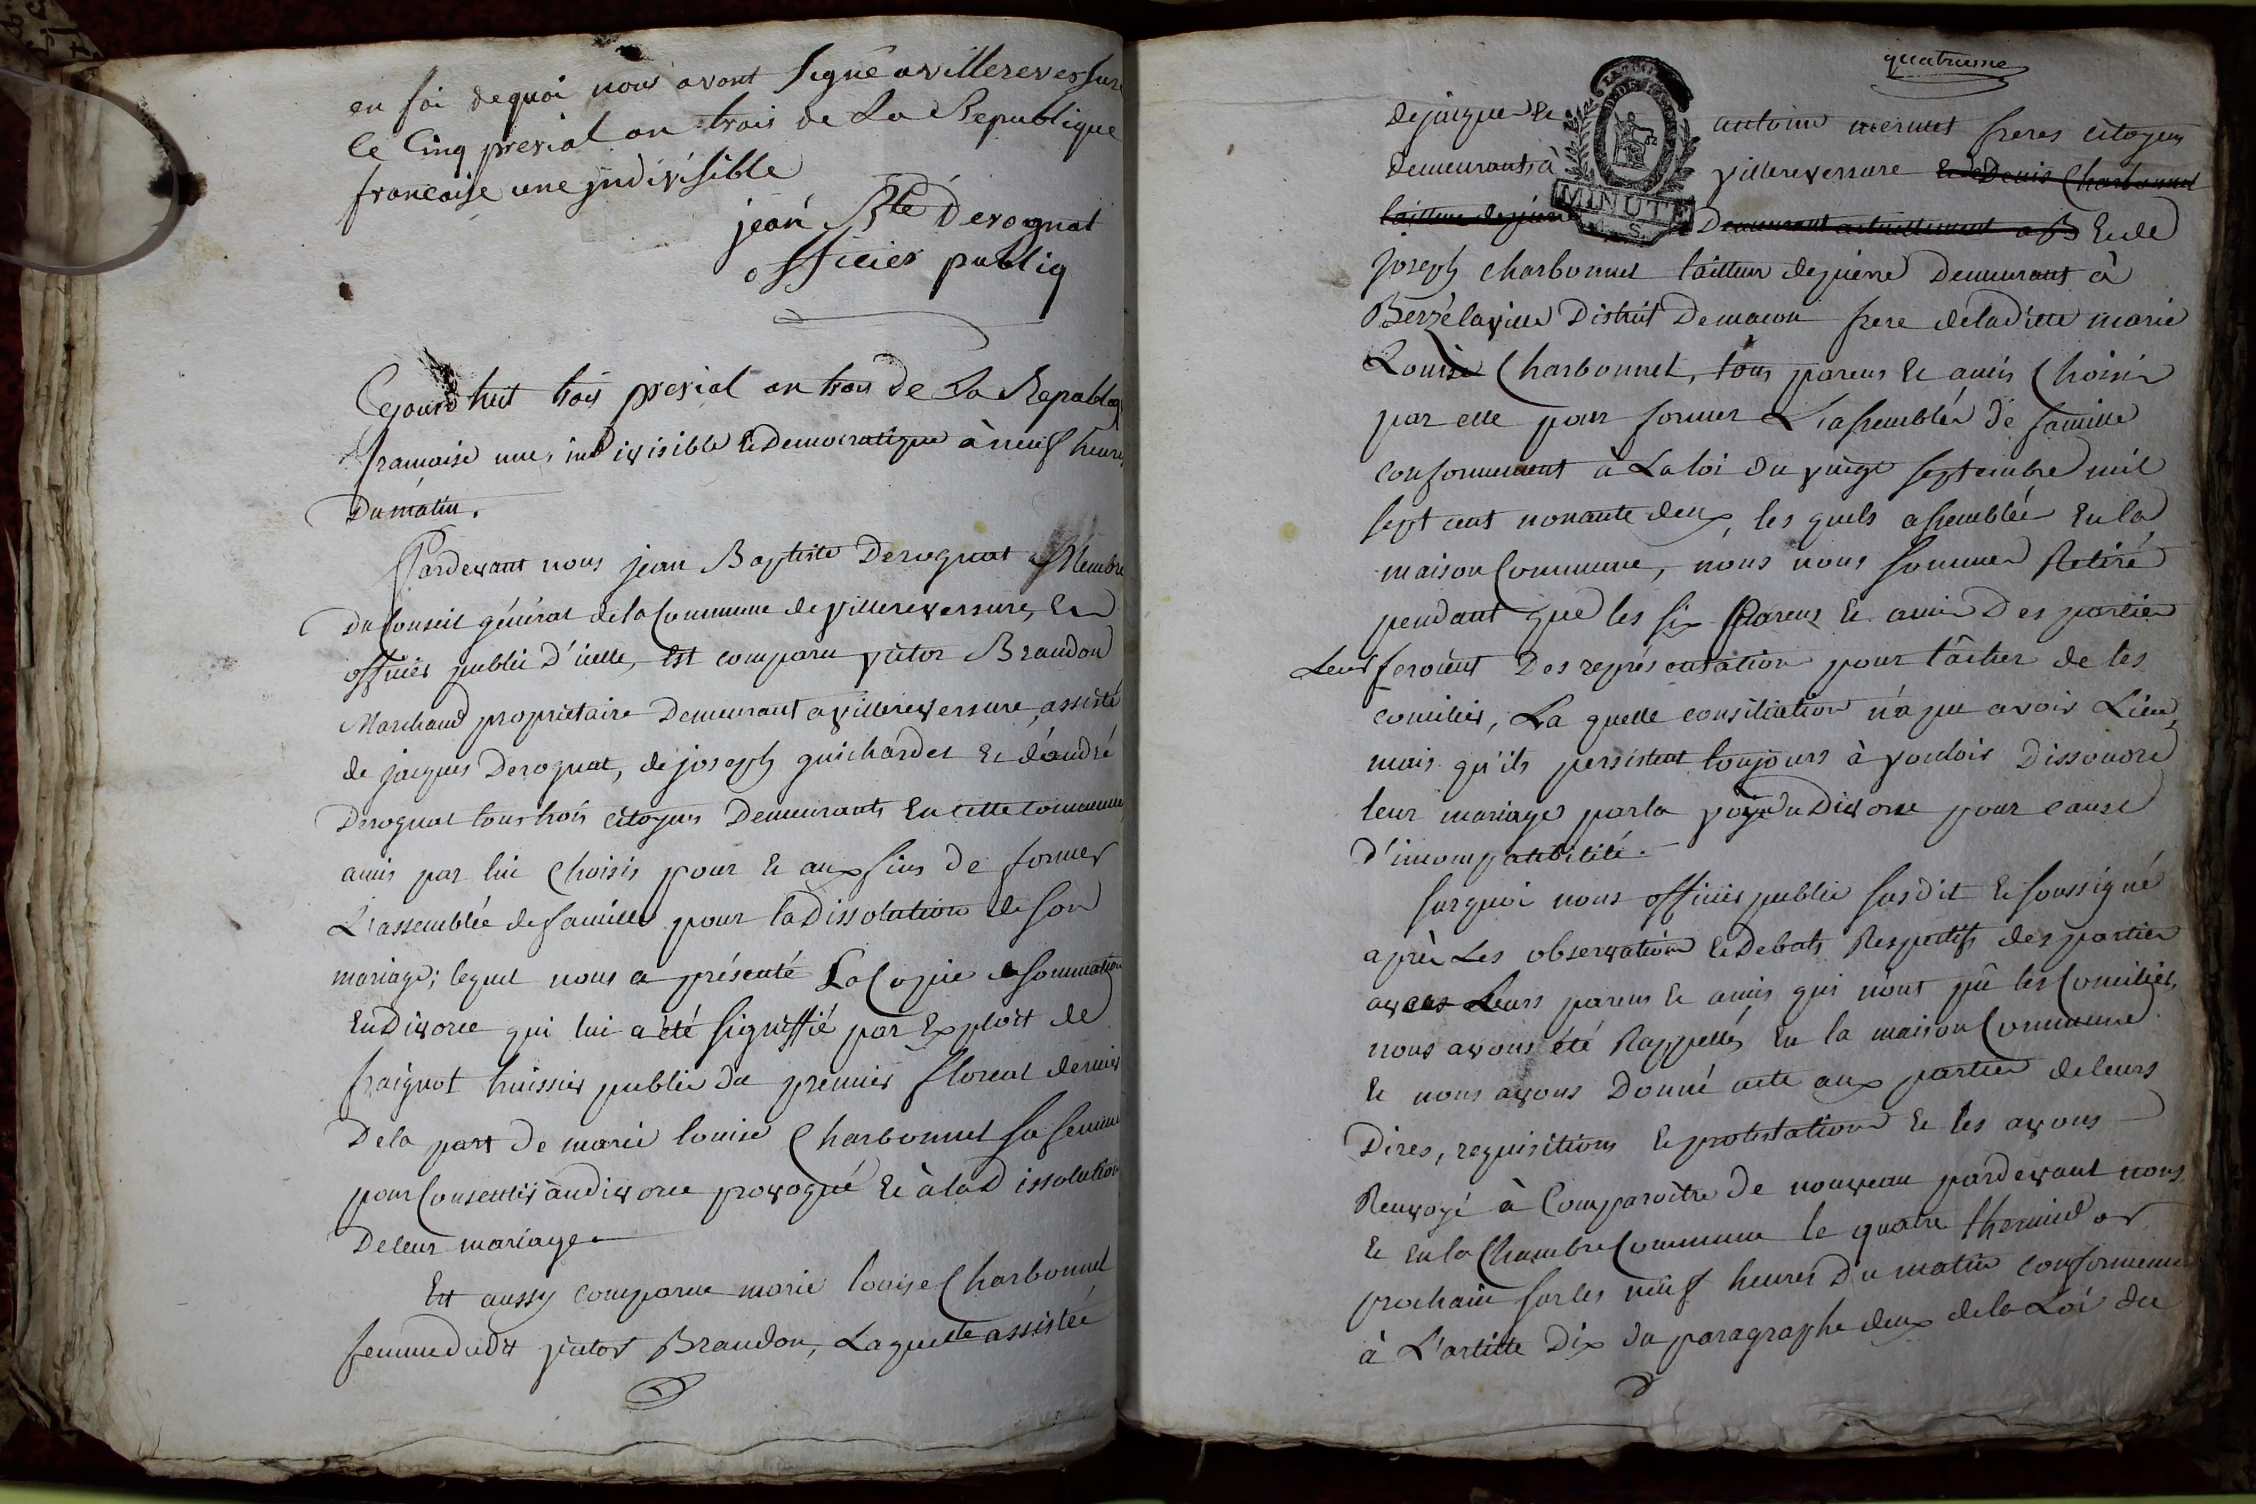 en foi de quoi nous avont signé a villereversure
le Cinq prerial an trois de La Republique
francaise une indivisible
jean Bte Derognat
officier publiq
Cejourdhuit trois prerial an trois de La Republiq
francaise une, indivisible & Democratique à neuf heures
Du matin.
Pardevant nous jean Baptiste Derognat Membre
Du Conseil général de la Commune de villereversure, &
officier public d'icelle, Est comparu victor Brandon
Marchand propriétaire Demeurant a villereversure, assisté
de jacques Derognat, de joseph guichardet & d'andré
Derognat tous trois citoyens Demeurants En cette commune
amis par lui Choisis pour & aux fins de former
L'assemblée de famille pour la Dissolution de son
mariage; lequel nous a présenté La Copie de sommation
En Divorce qui lui a été signiffié par Exploit de
fraignot huissier public du premier floreal dernier
De la part de marie louise Charbonnet sa femme
pour Consentir au divorce provoqué & à la Dissolution
De leur mariage
Est aussy comparue marie louise Charbonnet
femme dudit victor Brandon, Laquelle assistée
quatrieme
de jacque & antoine mermet freres citoyens
demeurants à villereversure & de Denis Charbonnet
tailleur de pierre Demeurant actuellement a B & de
MINUTE
joseph charbonnet tailleur de pierre Demeurant à
Berzélaville District De macon frere de la ditte marie
Louise Charbonnet, tous parens & amis Choisis
par elle pour former L'assemblée de famille
conformement à La loi du vingt septembre mil
sept cent nonante deux, les quels assemblée En la
maison Commune, nous nous sommes Retiré
pendant que les six Parens & amis Des parties
Leurs feroient Des représentation pour tâcher de les
concilier, La quelle consiliation n'a pu avoir Lieu,
mais qu'ils persistent toujours à vouloir Dissoudre
leur mariage par la voye du Divorce pour cause
D'incompatibilité.
sur quoi nous officier public susdit & soussigné
après Les observation & Debats Respectifs des parties
avec Leurs parens & amis qui n'ont pû les Concilier,
nous avons été Rappellés En la maison Commune
& nous avons Donné acte aux parties de leurs
Dires, requisitions & protestation & les avons
Renvoyé à Comparoitre de nouveau pardevant nous
& En la Chambre Commune le quatre thermidor
prochain sur les neuf heures Du matin conformement
à L'article Dix du paragraphe deux de la Loi du